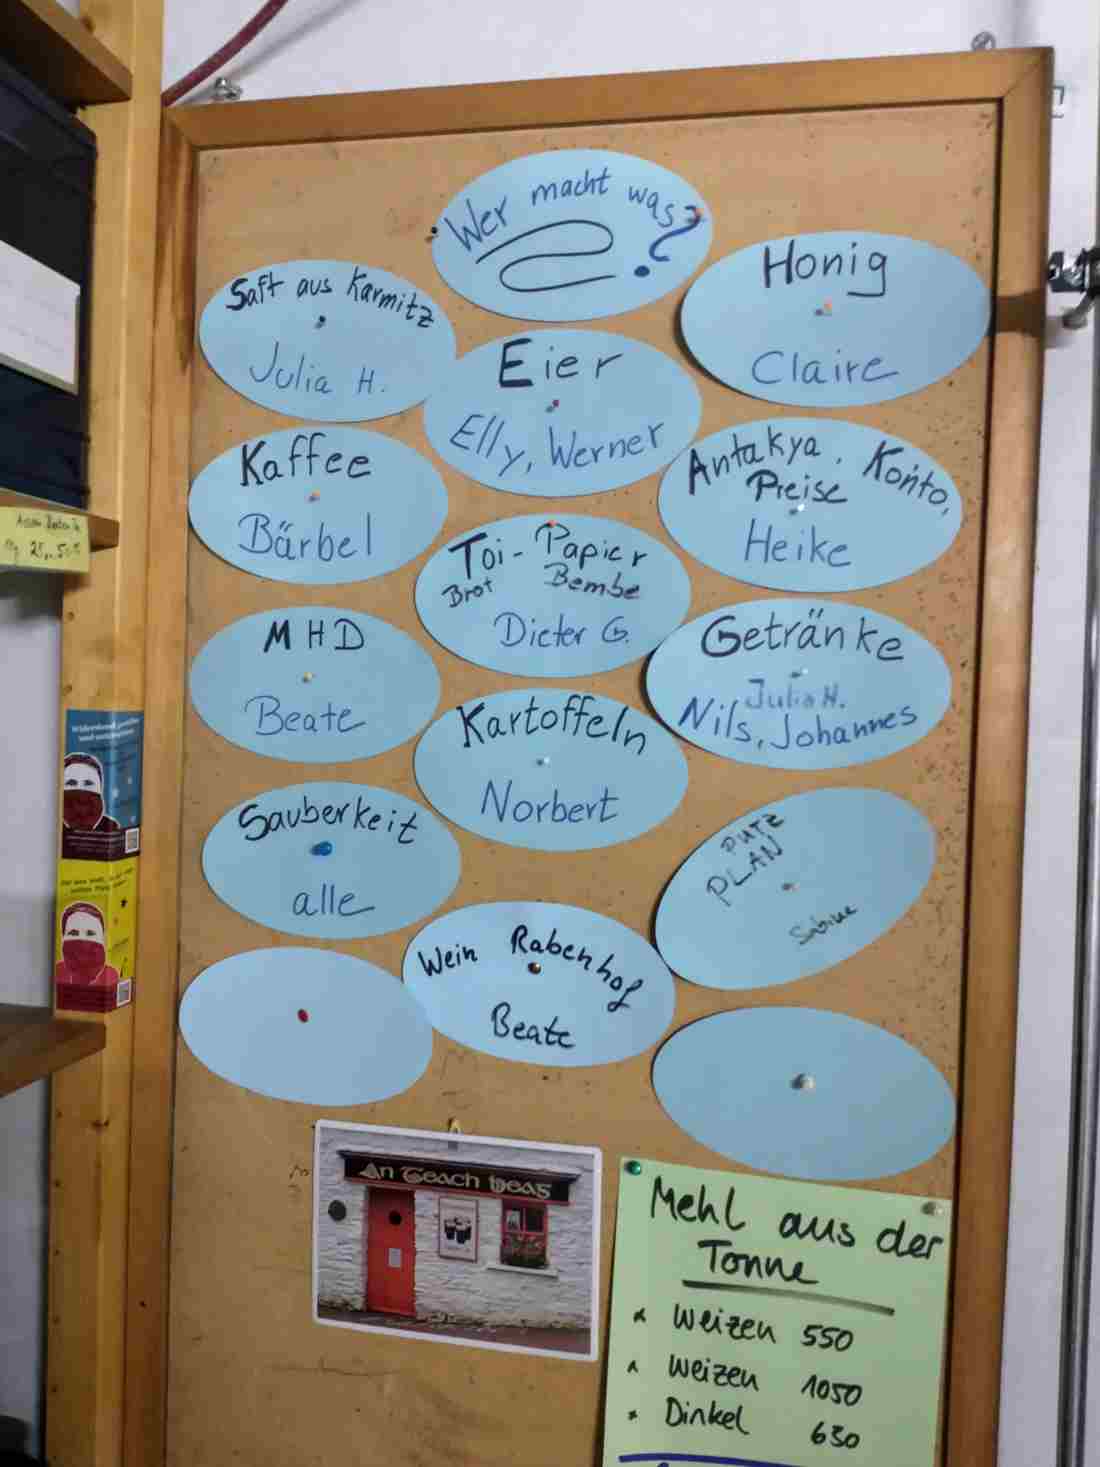 Wer macht was?
Saft aus Karmitz
Julia H.
Honig
Claire
Eier
Elly, Werner
Kaffee
Bärbel
Antakya. Konto,
Preise
Heike
Toi-Papier
Brot Bembe
Dieter G.
MHD
Beate
Getränke
Julia H.
Nils, Johannes
Kartoffeln
Norbert
Sauberkeit
alle
PUTZ
PLAN
Sabine
Wein Rabenhof
Beate
An Teach Beag
Mehl aus der
Tonne
Weizen 550
Weizen 1050
Dinkel 630